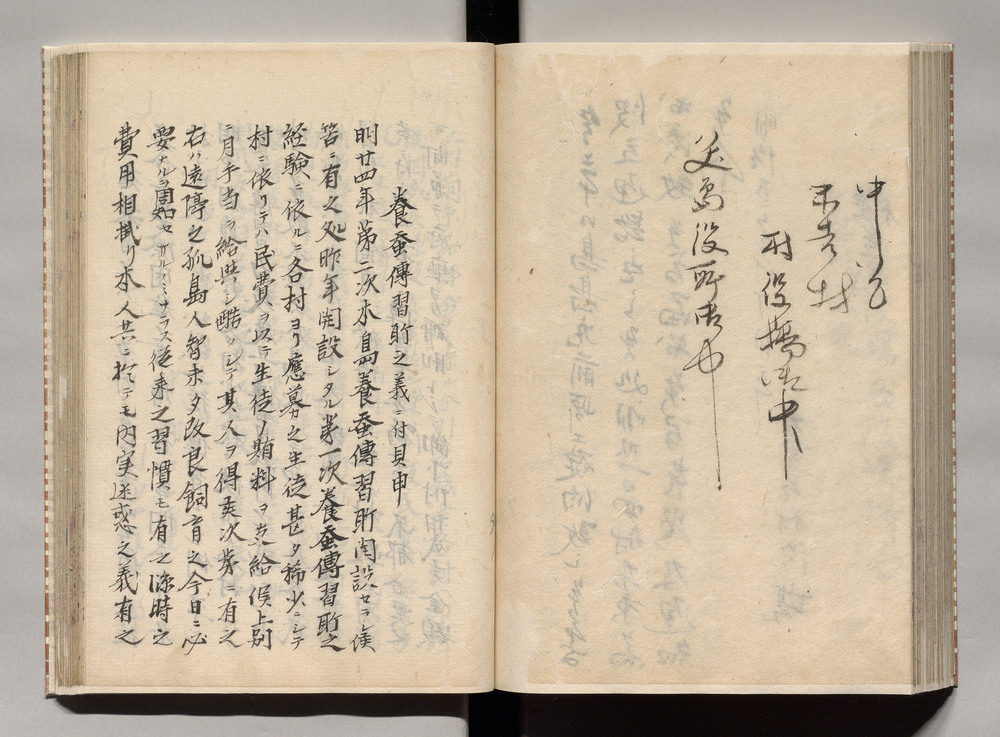 末吉村
村役場御中
父島役所御中
養蚕傳習所之義ニ付具申
明廿四年第二次本島養蚕傳習所開設セラレ候
筈ニ有之処昨年開設シタル第一次養蚕傳習所之
経験ニ依ルニ各村ヨリ應募之生徒甚タ稀少ニシテ
村ニ依リテハ民費ヲ以テ生徒ノ賄料ヲ支給候上別
ニ月手当ヲ給與シ酷シテ其人ヲ得候次第ニ有之
右ハ遠隔之孤島人智未タ改良飼育之今日ニ必
要ナルヲ セサルノミナラス従来之習慣モ有之際時之
費用相掛リ本人共ニ於テモ内実迷惑之義有之